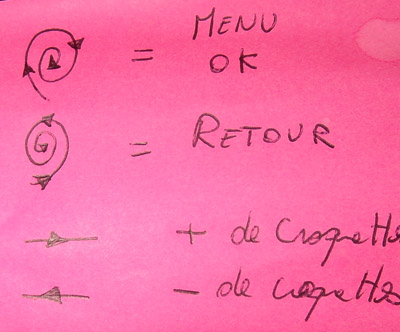 = MENU
OK
= RETOUR
+ de croquettes
- de croquettes